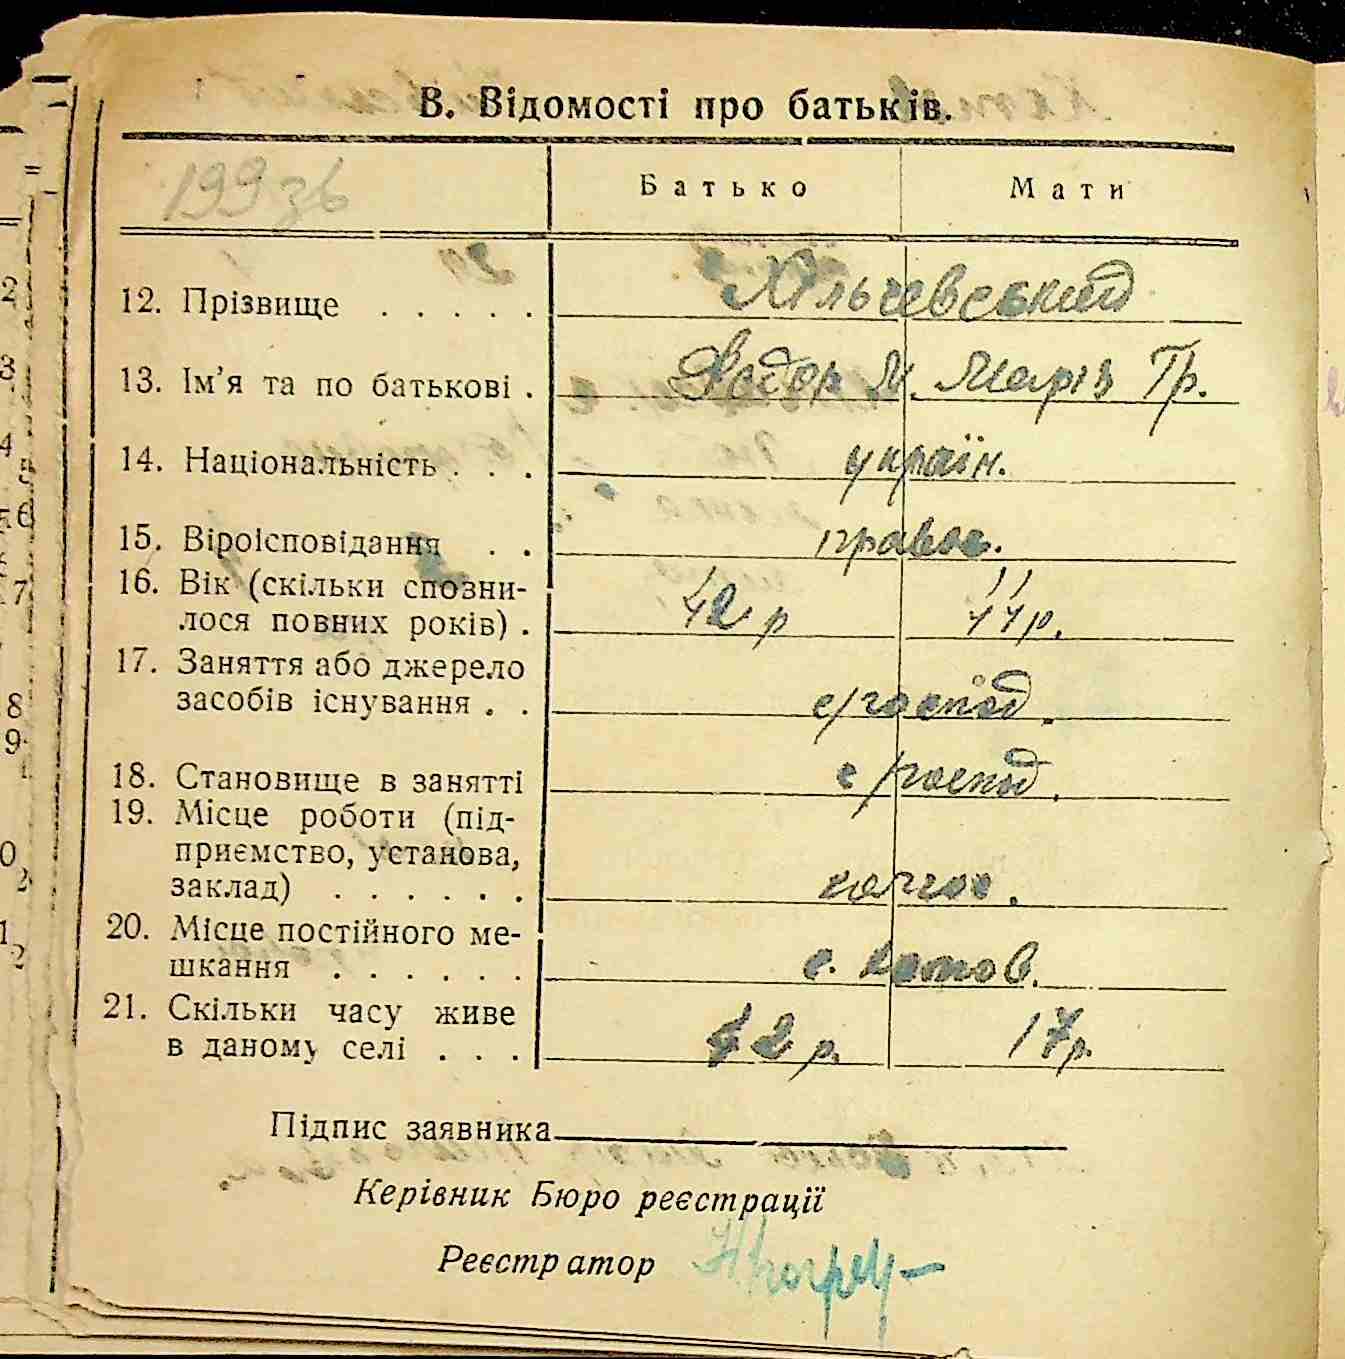 В. Відомості про батьків.
199 зв
Батько Мати
12. Прізвище . . . . . Хільчевський
13. Ім'я та по батькові . Федор М. Марія Гр.
14. Національність . . . україн.
15. Віроісповідання . . правос.
16. Вік (скільки спозни-
лося повних років) . 42 р 44 р.
17. Заняття або джерело
засобів існування . . с/господ.
18. Становище в занятті с/господ.
19. Місце роботи (під-
приємство, установа,
заклад) . . . . . .
20. Місце постійного ме-
шкання . . . . . . с.
21. Скільки часу живе
в даному селі . . . 42 р. 17 р.
Підпис заявника
Керівник Бюро реєстрації
Реєстратор